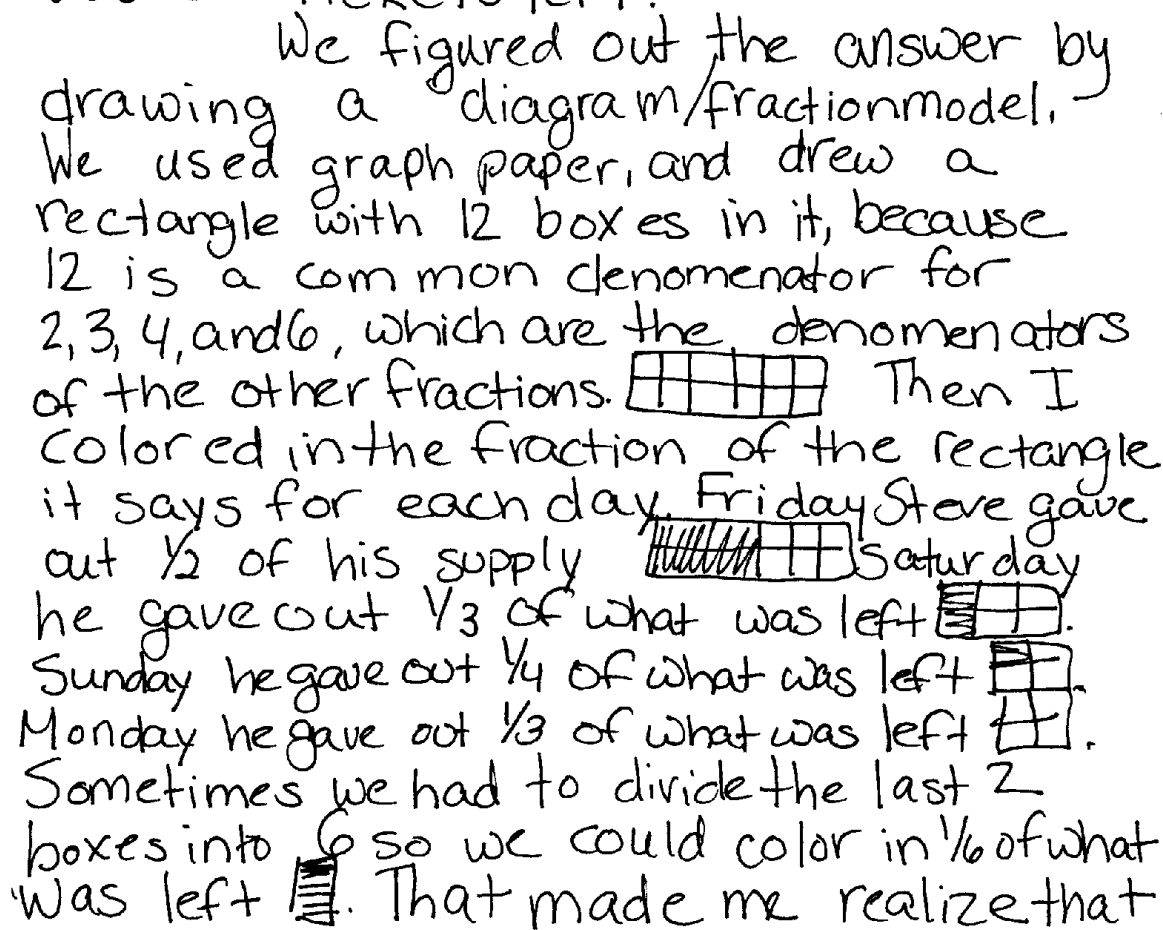 We figured out the answer by
drawing a diagram/fraction model.
We used graph paper, and drew a
rectangle with 12 boxes in it, because
12 is a common denomenator for
2, 3, 4, and 6, which are the denomenators
of the other fractions. Then I
colored in the fraction of the rectangle
it says for each day. Friday Steve gave
out 1/2 of his supply Saturday
he gave out 1/3 of what was left.
Sunday he gave out 1/4 of what was left.
Monday he gave out 1/3 of what was left.
Sometimes we had to divide the last 2
boxes into 6 so we could color in 1/6 of what
was left. That made me realize that